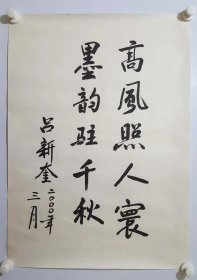 高風照人寰
墨韵駐千秋
呂新奎
二〇〇〇年
三月